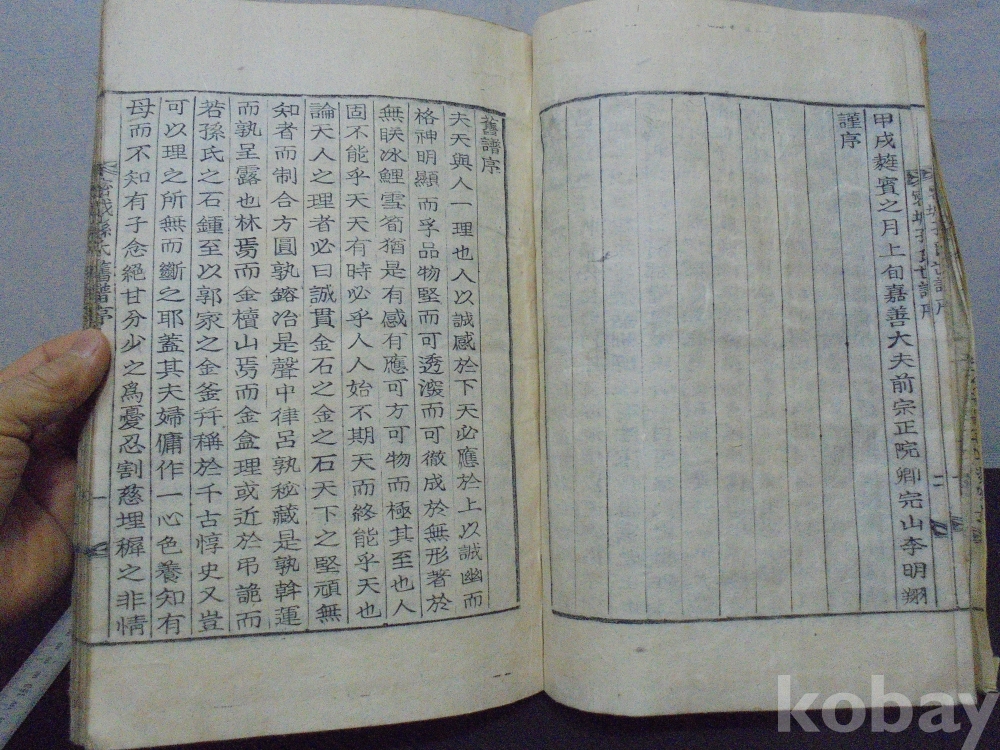 甲戌蕤賓之月上旬嘉善大夫前宗正院卿完山李明翔
謹序
舊譜序
夫天與人一理也人以誠感於下天必應於上以誠幽而
格神明顯而孚品物堅而可透潑而可徹成於無形著於
無眹冰鯉雪筍猶是有感有應可方可物而極其至也人
固不能乎天天有時必乎人人始不期天而終能乎天也
論天人之理者必曰誠貫金石之金之石天下之堅頑無
知者而制合方圓孰鎔冶是聲中律呂孰秘藏是孰斡運
而孰呈露也林焉而金櫝山焉而金盒理或近於弔詭而
若孫氏之石鍾至以郭家之金釜幷稱於千古惇史又豈
可以理之所無而斷之耶蓋其夫婦傭作一心色養知有
母而不知有子念絕甘分少之爲憂忍割慈埋穉之非情
密城孫氏舊譜序
一
二
kobay